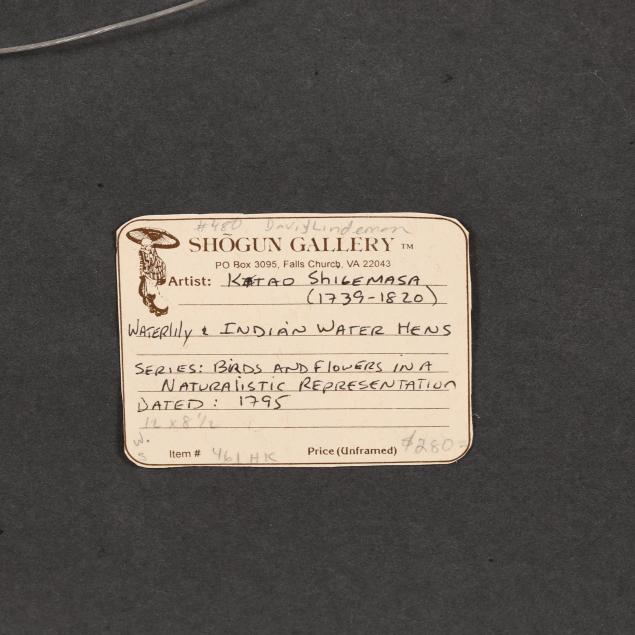 #480 David Lindeman
SHŌGUN GALLERY ™
PO Box 3095, Falls Church, VA 22043
Artist: KITAO SHIGEMASA
(1739-1820)
WATERlily & INDIAN WATER HENS
SERIES: BIRDS AND FlOWERS IN A
NATURAlISTIC REPRESENTATION
DATED: 1795
12 x 8 1/2
W.
S
Item # 461 HK Price (Unframed) $280=